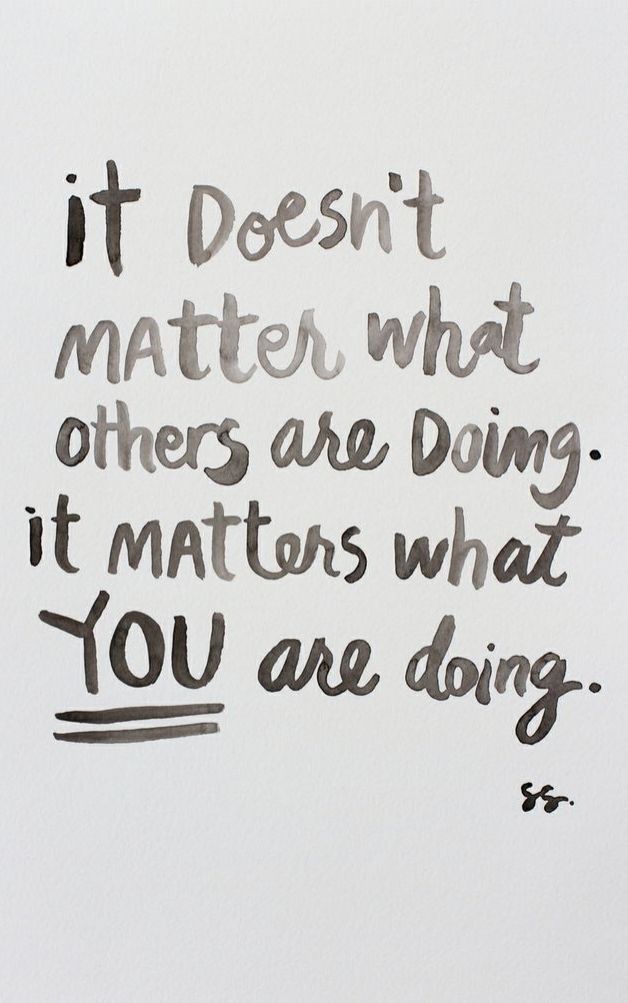 it Doesn't
MAtter what
others are Doing.
it MAtters what
YOU are doing.
ss.